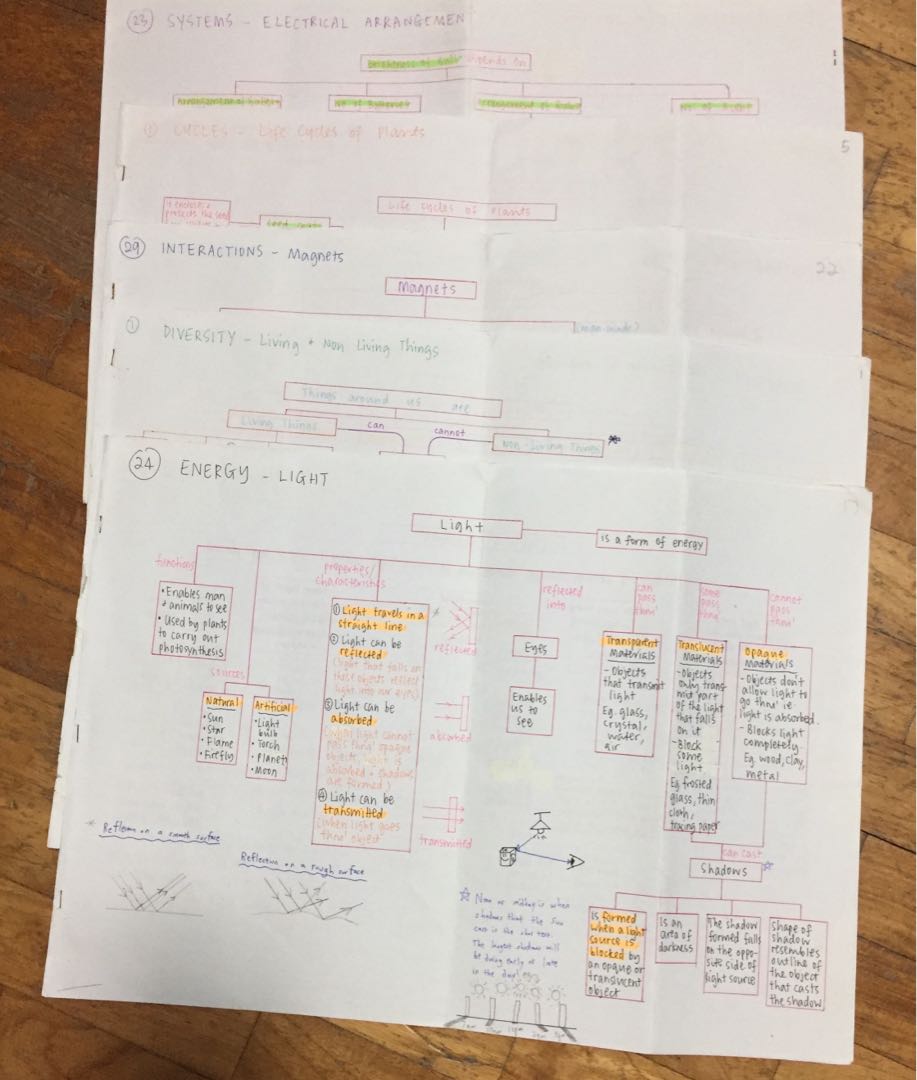 23 SYSTEMS - ELECTRICAL ARRANGEMEN
Brightness of bulb depends on
Arrangement of
No. of
Arrangement of
No. of
① CYCLES - Life Cycles of Plants
5
protects the seed
Life cycles of Plants
29 INTERACTIONS - Magnets
22
Magnets
(man-made)
① DIVERSITY - Living + Non Living Things
Things around us are
Living Things
can
cannot
Non-Living Things *
24 ENERGY - LIGHT
Light
is a form of energy
functions
• Enables man
+ animals to see
• Used by plants
to carry out
photosynthesis
sources
Natural
• Sun
• Star
• Flame
• Firefly
Artificial
• Light
bulb
• Torch
• Planet
• Moon
properties/
characteristics
① Light travels in a
straight line
② Light can be
reflected
(light that falls on
these objects reflect
light into our eyes)
③ Light can be
absorbed
(when light cannot
pass thru' opaque
objects, light is
absorbed + shadows
are formed)
④ Light can be
transmitted
(when light goes
thru' object
reflected
absorbed
transmitted
reflected
into
Eyes
Enables
us to
see
can
pass
thru'
Transparent
Materials
- Objects
that transmit
light
Eg. glass,
crystal,
water,
air
some
pass
thru'
Translucent
Materials
- Objects
only trans
mit part
of the light
that falls
on it
- Block
some
light
Eg. frosted
glass, thin
cloth,
tracing paper
cannot
pass
thru'
Opaque
Materials
- Objects don't
allow light to
go thru' ie.
light is absorbed.
- Blocks light
completely
Eg. wood, clay,
metal
can cast
Shadows
is formed
when a light
source is
blocked by
an opaque or
translucent
object
is an
area of
darkness
The shadow
formed falls
on the oppo-
site side of
light source
shape of
shadow
resembles
outline of
the object
that casts
the shadow
* Reflection on a smooth surface
Reflection on a rough surface
Noon or midday is when
shadows that the Sun
cast is the shortest.
The longest shadow will
be during early or late
in the day!